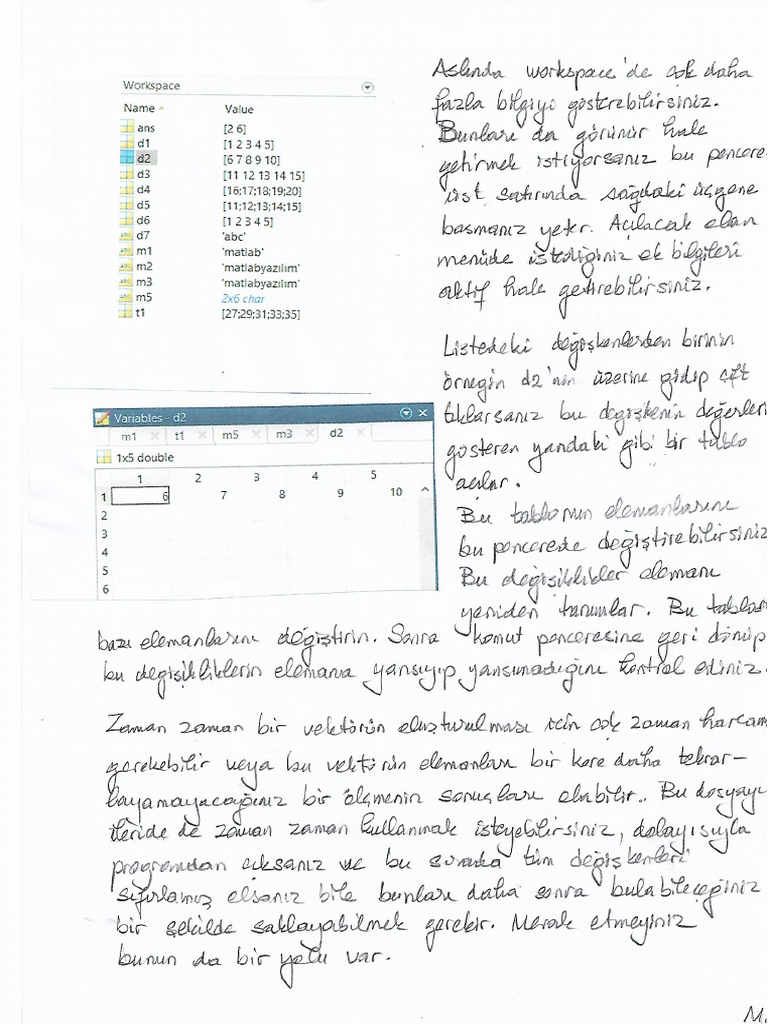 Workspace
Name Value
ans [2 6]
d1 [1 2 3 4 5]
d2 [6 7 8 9 10]
d3 [11 12 13 14 15]
d4 [16;17;18;19;20]
d5 [11;12;13;14;15]
d6 [1 2 3 4 5]
d7 'abc'
m1 'matlab'
m2 'matlabyazılım'
m3 'matlabyazılım'
m5 2x6 char
t1 [27;29;31;33;35]
Aslında workspace'de çok daha
fazla bilgiyi gösterebilirsiniz.
Bunları da görünür hale
getirmek istiyorsanız bu pencere
üst satırında sağdaki üçgene
basmanız yeter. Açılacak olan
menüde istediğiniz ek bilgileri
aktif hale getirebilirsiniz.
Listedeki değişkenlerden birinin
örneğin d2'nin üzerine gidip çift
tıklarsanız bu değişkenin değerleri
gösteren yandaki gibi bir tablo
açılır.
Bu tablonun elemanlarını
bu pencerede değiştirebilirsiniz
Bu değişiklikler elemanı
yeniden tanımlar. Bu tablo
Variables - d2
m1 t1 m5 m3 d2
1x5 double
1 2 3 4 5
1 6 7 8 9 10
2
3
4
5
6
bazı elemanlarını değiştirin. Sonra komut penceresine geri dönüp
bu değişikliklerin elemana yansıyıp yansımadığını kontrol ediniz.
Zaman zaman bir vektörün oluşturulması için çok zaman harcama
gerekebilir veya bu vektörün elemanları bir kere daha tekrar-
layamayacağınız bir ölçmenin sonuçları olabilir.. Bu dosyayı
ileride de zaman zaman kullanmak isteyebilirsiniz, dolayısıyla
programdan çıksanız ve bu sırada tüm değişkenleri
sıfırlamış olsanız bile bunları daha sonra bulabileceğiniz
bir şekilde saklayabilmek gerekir. Merak etmeyiniz
bunun da bir yolu var.
M.